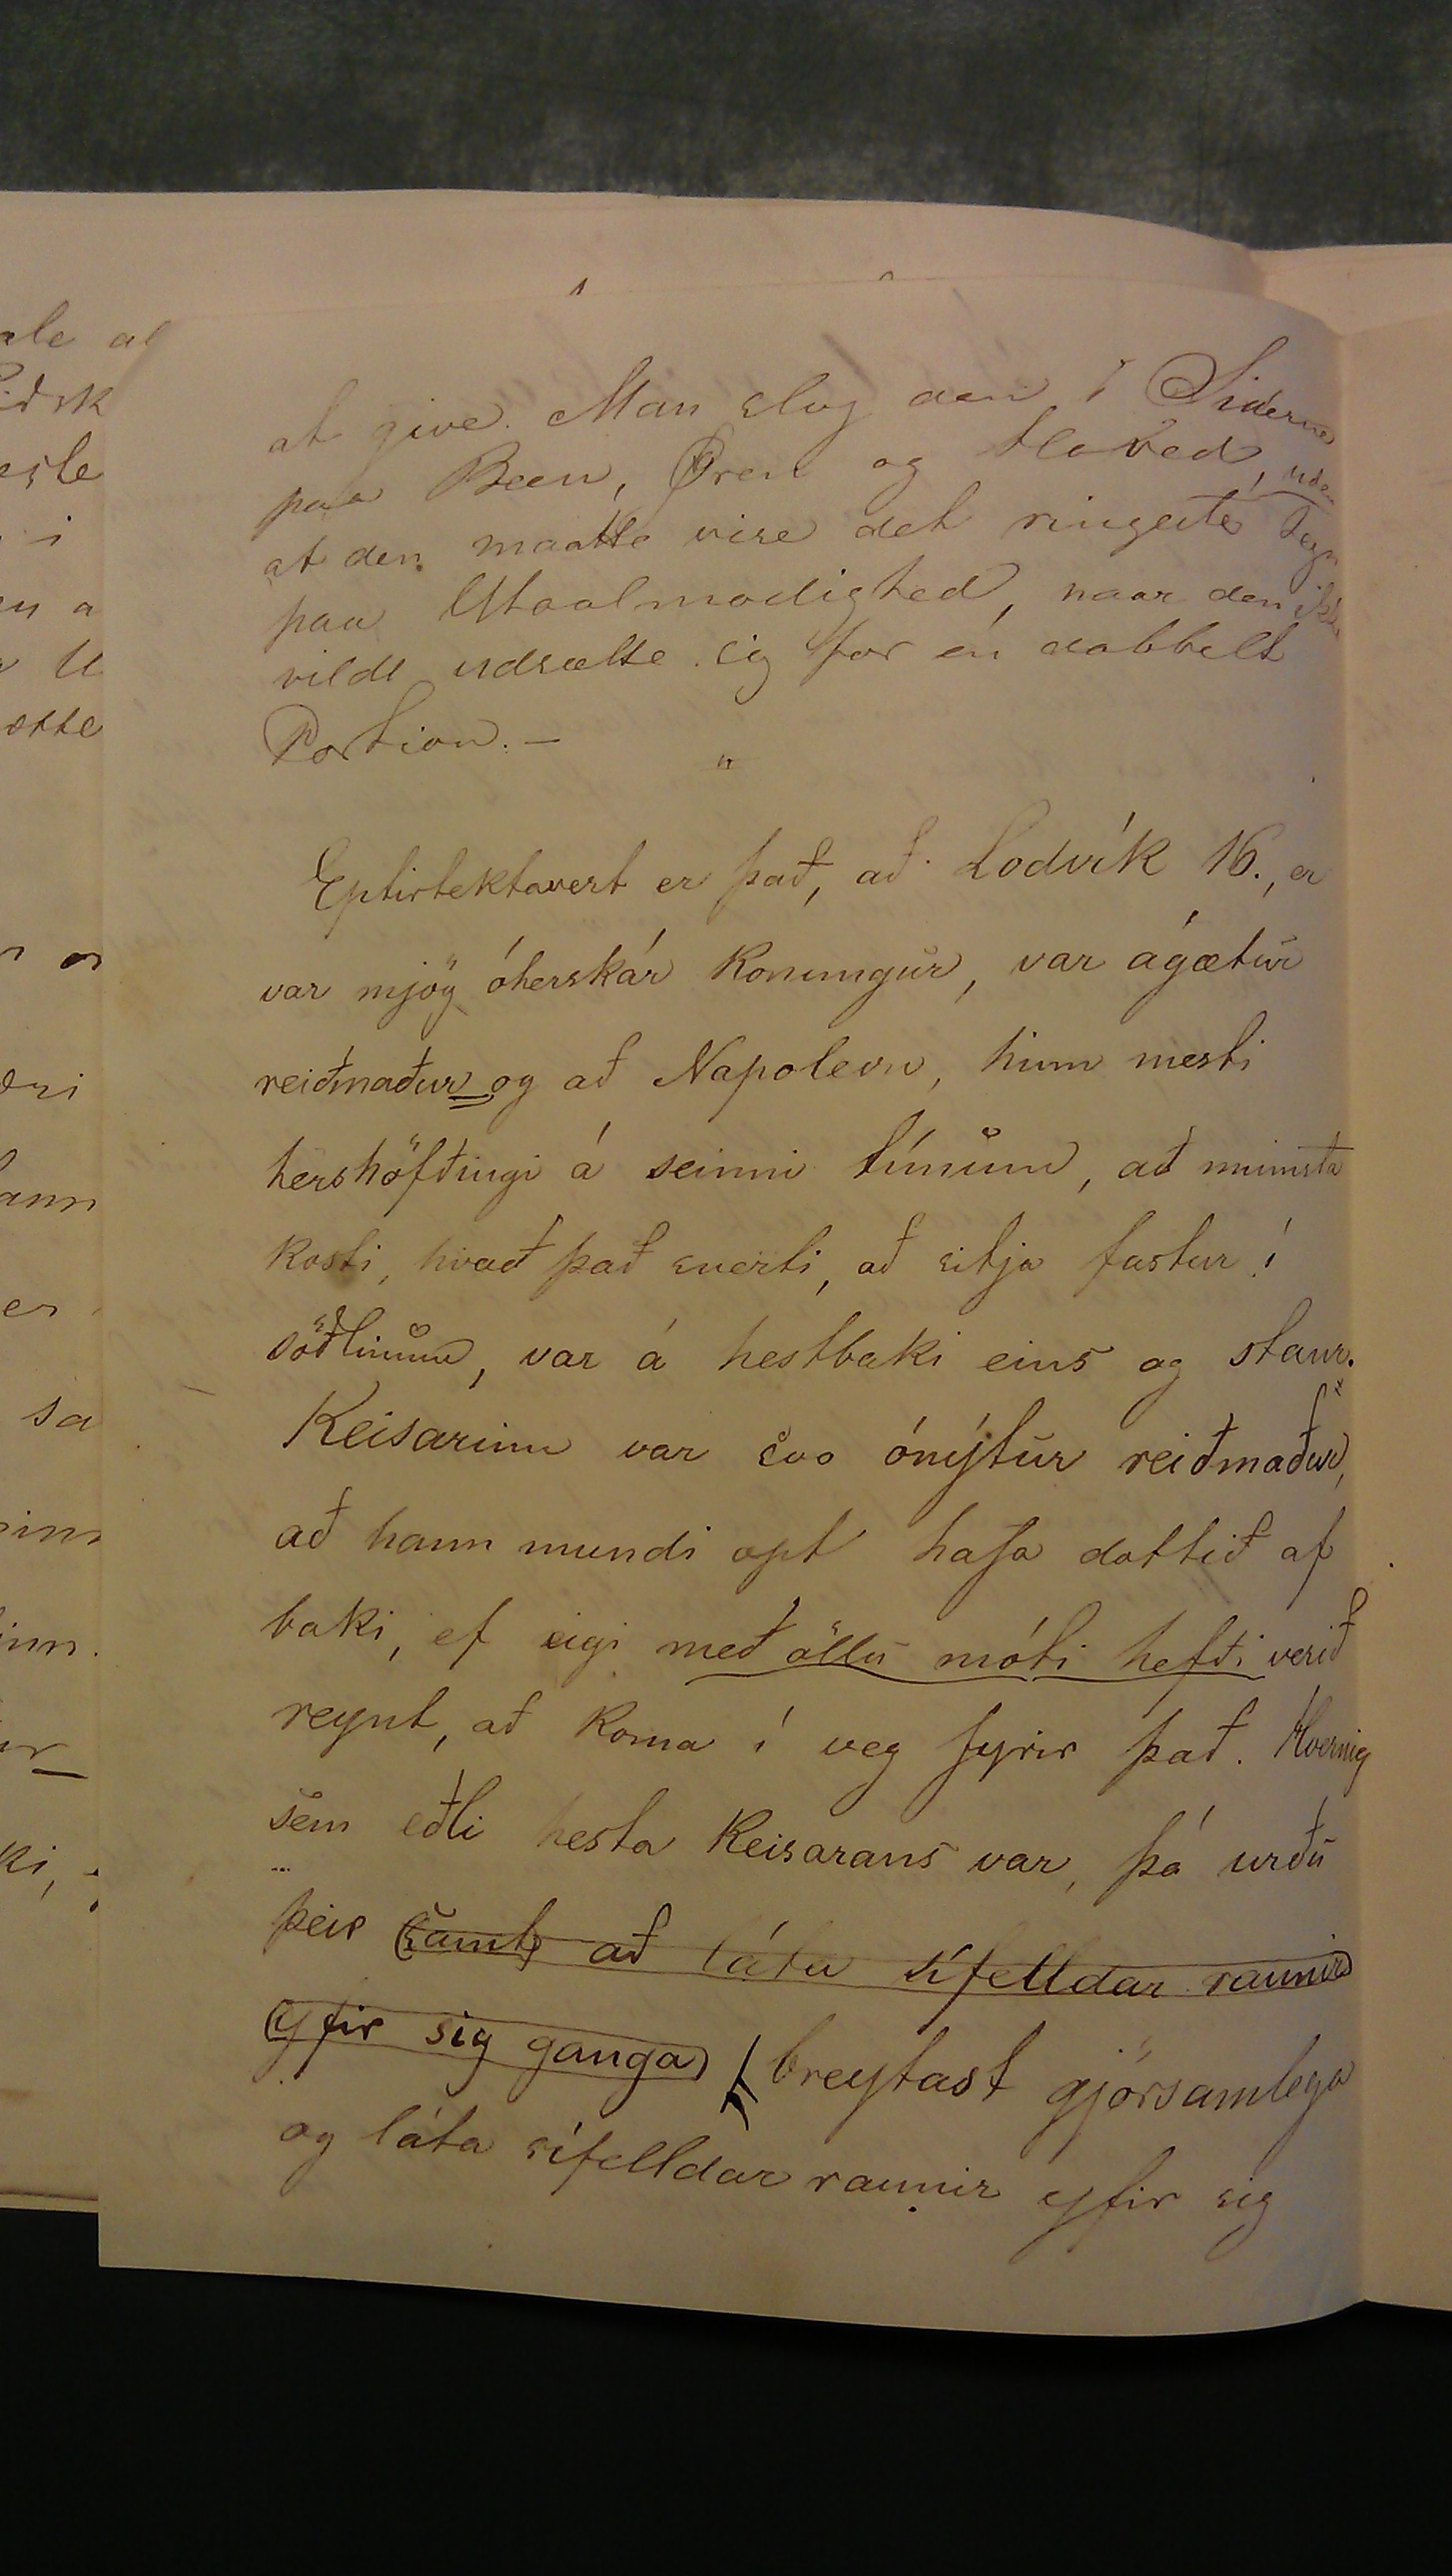 at give. Man slog den i Siderne
paa Been, Øren og Hoved, uden
at den maatte vise det ringeste Tegn
paa Utaalmodighed, naar den ikke
vilde udsætte sig for en dobbelt
Portion. —
"
Eptirtektavert er það, að Lodvík 16., er
var mjög óherskár konungur, var ágætur
reiðmaður og að Napoleon, hinn mesti
hershöfðingi á seinni tímum, að minnsta
kosti, hvað það snerti, að sitja fastur í
söðlinum, var á hestbaki eins og staur.
Keisarinn var svo ónýtur reiðmaður,
að hann mundi opt hafa dottið af
baki, ef eigi með öllu móti hefði verið
reynt, að koma í veg fyrir það. Hvernig
sem eðli hesta Keisarans var, þá urðu
þeir (samt) að láta sífelldar raunir
yfir sig ganga) breytast gjörsamlega
og láta sífelldar raunir yfir sig